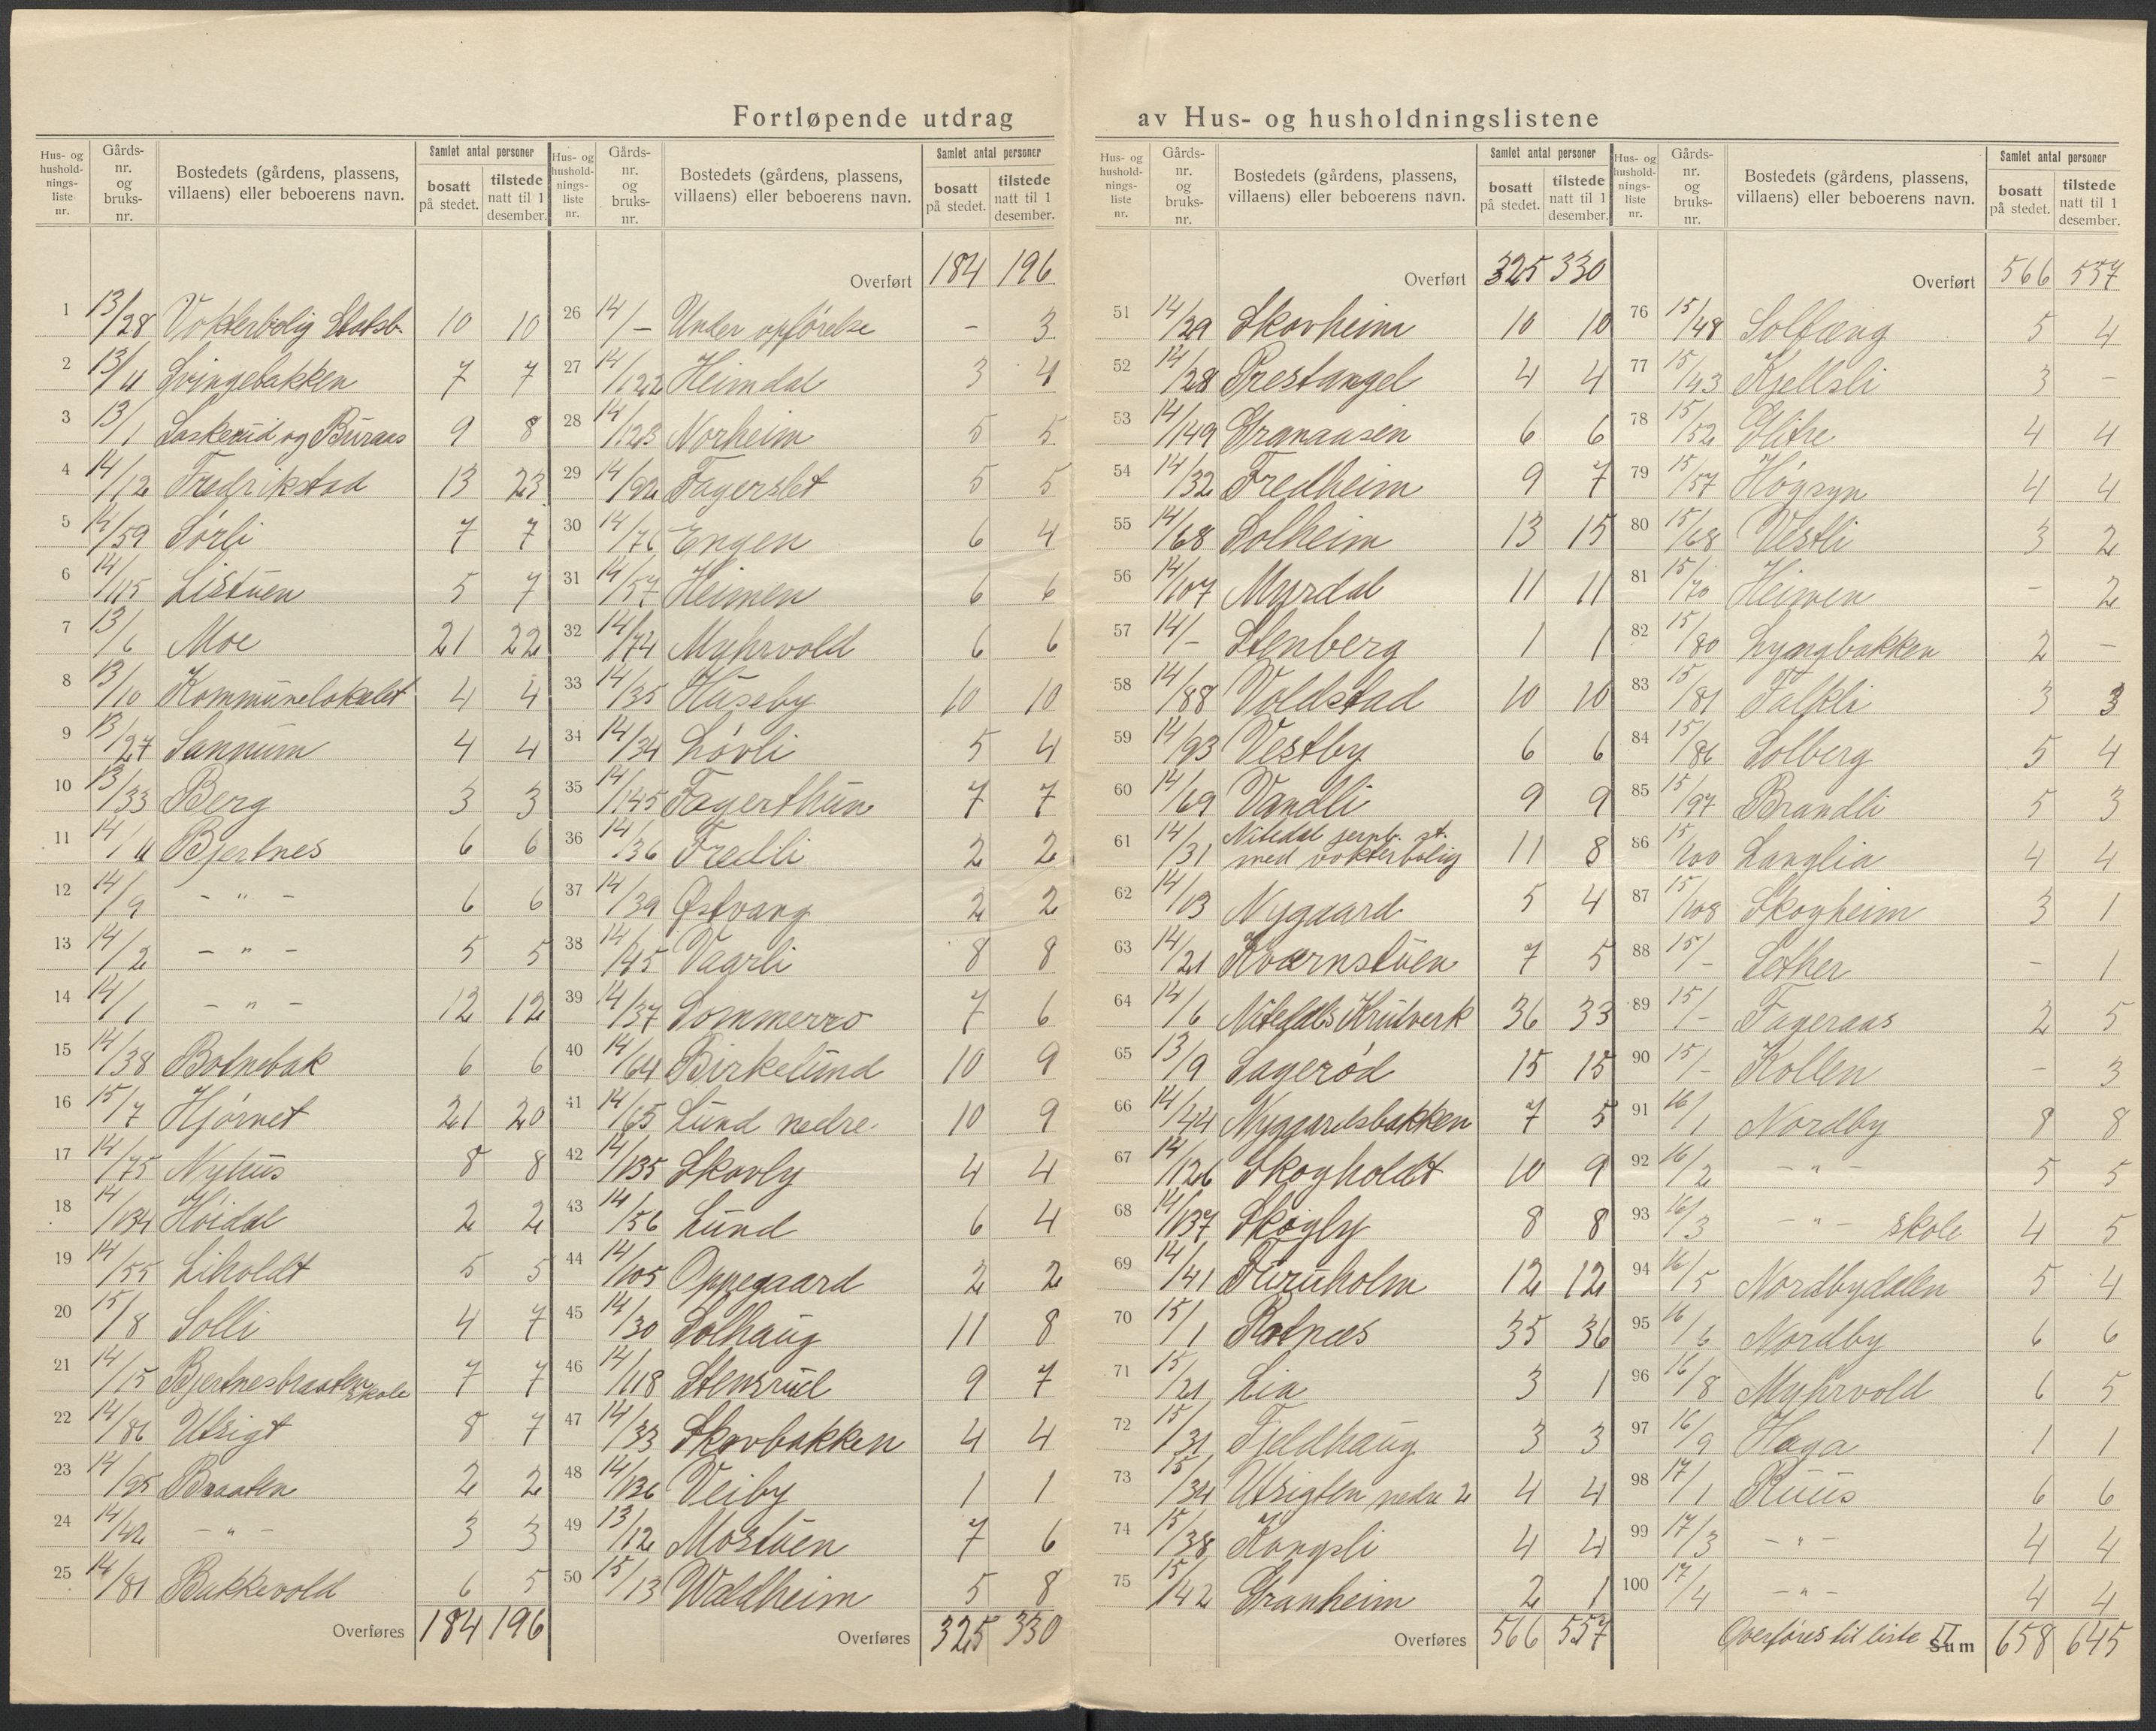 Fortløpende utdrag av Hus- og husholdningslistene
Hus- og husholdningsliste nr. Gårds- nr. og bruks- nr. Bostedets (gårdens, plassens, villaens) eller beboerens navn. Samlet antal personer bosatt på stedet. tilstede natt til 1 desember.
1 13/28 Vokterbolig Statsb. 10 10
2 13/4 Svingebakken 7 7
3 13/1 Laskerud og Buraas 9 8
4 14/12 Fredrikstad 13 23
5 14/59 Sörli 7 7
6 14/115 Listuen 5 7
7 13/6 Moe 21 22
8 13/10 Kommunelokalet 4 4
9 13/27 Sannum 4 4
10 13/33 Berg 3 3
11 14/4 Bjertnes 6 6
12 14/9 - " - 6 6
13 14/2 - " - 5 5
14 14/1 - " - 12 12
15 14/38 Botnebak 6 6
16 15/7 Hjørnet 21 20
17 14/75 Nyhus 8 8
18 14/134 Höidal 2 2
19 14/55 Liholdt 5 5
20 15/8 Solli 4 7
21 14/15 Bjertnesbraaten skole 7 7
22 14/86 Utsigt 8 7
23 14/95 Braaten 2 2
24 14/42 - " - 3 3
25 14/81 Bakkevold 6 5
Overføres 184 196
Hus- og husholdningsliste nr. Gårds- nr. og bruks- nr. Bostedets (gårdens, plassens, villaens) eller beboerens navn. Samlet antal personer bosatt på stedet. tilstede natt til 1 desember.
Overført 184 196
26 14/- Under opförelse - 3
27 14/122 Heimdal 3 4
28 14/123 Norheim 5 5
29 14/92 Fagerslet 5 5
30 14/76 Engen 6 4
31 14/57 Heimen 6 6
32 14/74 Myhrvold 6 6
33 14/35 Huseby 10 10
34 14/34 Løvli 5 4
35 14/145 Fagerthun 7 7
36 14/36 Fredli 2 2
37 14/39 Østvang 2 2
38 14/45 Vaarli 8 8
39 14/37 Sommerro 7 6
40 14/64 Birkelund 10 9
41 14/65 Lund nedre 10 9
42 14/135 Skovly 4 4
43 14/56 Lund 6 4
44 14/105 Oppegaard 2 2
45 14/30 Solhaug 11 8
46 14/118 Stensrud 9 7
47 14/33 Skovbakken 4 4
48 14/136 Veiby 1 1
49 13/12 Mostuen 7 6
50 15/13 Waldheim 5 8
Overføres 325 330
Hus- og husholdningsliste nr. Gårds- nr. og bruks- nr. Bostedets (gårdens, plassens, villaens) eller beboerens navn. Samlet antal personer bosatt på stedet. tilstede natt til 1 desember.
Overført 325 330
51 14/29 Skovheim 10 10
52 14/28 Prestangel 4 4
53 14/149 Granaasen 6 6
54 14/32 Fredheim 9 7
55 14/68 Solheim 13 15
56 14/107 Myrdal 11 11
57 14/- Stenberg 1 1
58 14/88 Voldstad 10 10
59 14/93 Vestby 6 6
60 14/69 Vandli 9 9
61 14/31 Nitedal jernb. st. med vokterbolig 11 8
62 14/13 Nygaard 5 4
63 14/21 Kværnstuen 7 5
64 14/6 Nitedals Krutverk 36 33
65 13/9 Sagerød 15 15
66 14/44 Nygaardsbakken 7 5
67 14/126 Skogholdt 10 9
68 14/137 Skogly 8 8
69 14/41 Furuholm 12 12
70 15/1 Rotnæs 35 36
71 15/21 Lia 3 1
72 15/31 Fjeldhaug 3 3
73 15/34 Utsigten nedre 2 4 4
74 15/38 Kongsli 4 4
75 15/142 Granheim 2 1
Overføres 566 557
Hus- og husholdningsliste nr. Gårds- nr. og bruks- nr. Bostedets (gårdens, plassens, villaens) eller beboerens navn. Samlet antal personer bosatt på stedet. tilstede natt til 1 desember.
Overført 566 557
76 15/48 Solfæng 5 4
77 15/43 Kjellsli 3 -
78 15/52 Glitre 4 4
79 15/57 Høgsyn 4 4
80 15/68 Vestli 3 2
81 15/70 Heimen - 2
82 15/80 Lyngbakken 2 -
83 15/81 Falkli 3 3
84 15/86 Solberg 5 4
85 15/97 Brandli 5 3
86 15/100 Langlia 4 4
87 15/108 Skogheim 3 1
88 15/- Sether - 1
89 15/- Fageraas 2 5
90 15/- Kollen - 3
91 16/1 Nordby 8 8
92 16/2 - " - 5 5
93 16/3 - " - skole 4 5
94 16/5 Nordbydalen 5 4
95 16/6 Nordby 6 6
96 16/8 Myhrvold 6 5
97 16/9 Haga 1 1
98 17/1 Ruus 6 6
99 17/3 - " - 4 4
100 17/4 - " - 4 4
Overføres til liste II Sum 658 645